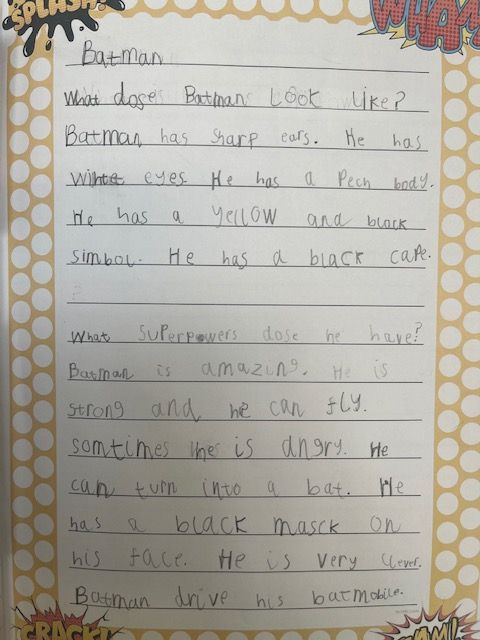 SPLASH!
WHAM
Batman
What dose Batman Look Like?
Batman has sharp ears. He has
winte eyes He has a Pech body.
He has a yellow and black
simbol. He has a black cape.
What superpowers dose he have?
Batman is amazing. He is
strong and he can fly.
somtimes he is angry. He
can turn into a bat. He
has a black masck on
his face. He is very clever.
Batman drive his batmobile.
CRACK!